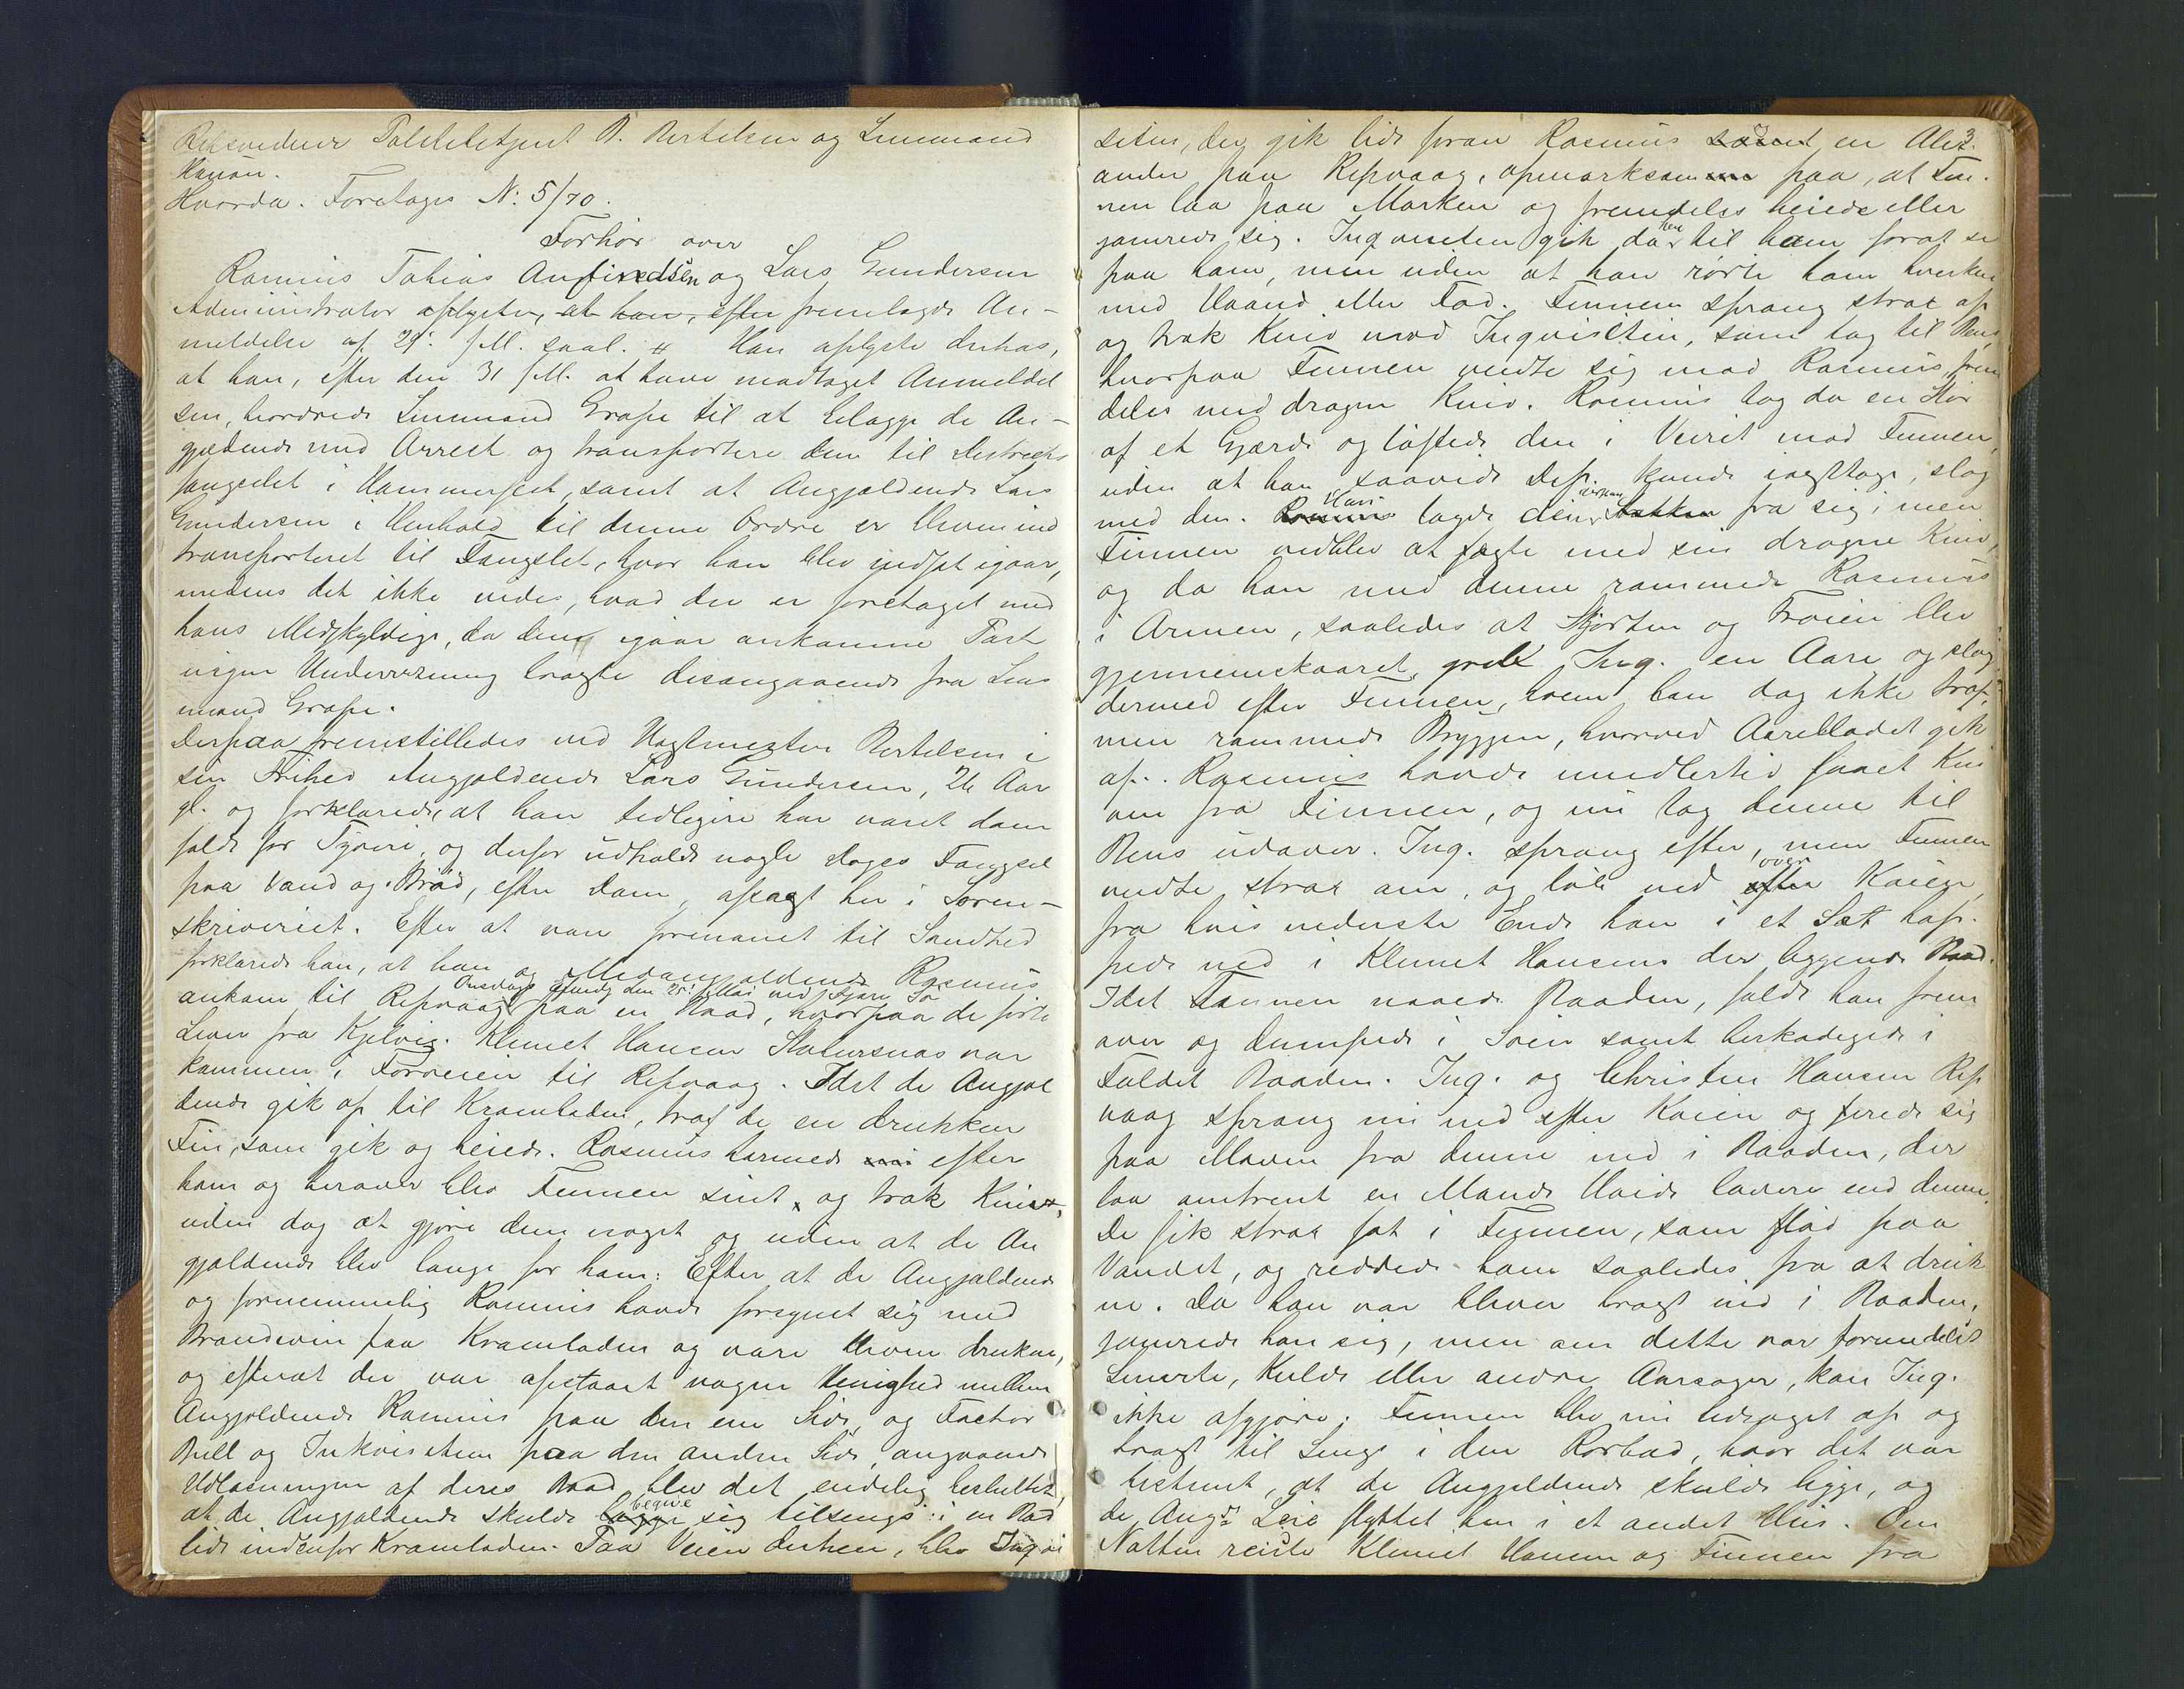 Retsvidner Politibetjent B. Bertelsen og Lensmand
Hanson.
Hvorda. Foretages N: 5/70.
Forhör over
Rasmus Tobias Anfindsen og Lars Gundersen
Administrator oplyste, at han, efter fremlagde An-
meldelse af 29: f.M. saal. # Han oplyste derhos,
at han, efter den 31 f.M. at have modtaget Anmeldel
sen, beordrede Lensmand Grape til at belægge de An-
gjældende med Arrest og transportere dem til Distrikts
fængslet i Hammerfest, samt at Angjældende Lars
Gundersen i Henhold til denne Ordre er bleven ind
transporteret til Fængslet, hvor han blev indsat igaar,
medens det ikke vides, hvad der er foretaget med
hans Medskyldige, da den igaar ankomne Post
ingen Underretning bragte desangaaende fra Lens
mand Grape.
Derpaa fremstilledes ved Vagtmester Bertelsen i
sin Frihed Angjældende Lars Gundersen, 26 Aar
gl. og forklarede, at han tidligere har været döm
faldt for Tyveri, og derfor udholdt nogle Dages Fængsel
paa Vand og Bröd, efter Dom, afsagt her i Soren-
skriveriet. Efter at være formanet til Sandhed
forklarede han, at han og Medangjældende Rasmus
Onsdags den 25: Mai ved
ankom til Repvaag paa en Baad, hvorpaa de förte
Lever fra Kjelvig. Klemet Hansen Statursnas var
kommen i Forveien til Repvaag. Idet de Angjæl
dende gik op til Kramboden, traf de en drukken
Fin, som gik og beiede. Rasmus hermede efter
ham og herover blev Finnen sint, og trak Kniv,
uden dog at gjöre dem noget og uden at de An
gjældende blev bange for ham. Efter at de Angjældende
og fornemmelig Rasmus havde forsynet sig med
Brændevin paa Kramboden og vare bleven drukne,
og efterat der var opstaaet nogen Uenighed mellem
Angjældende Rasmus paa den ene Side, og Factor
Bull og Inkvisiten paa den anden Side, angaaende
Udlosningen af deres Baad blev det endelig besluttet,
begive
at de Angjældende skulde lægge sig tilsengs i en Bod
lidt indenfor Kramboden. Paa Veien derhen, blev Inqvi
3.
siten, der gik lidt foran Rasmus samt en Alex
ander fra Repvaag, opmærksom paa, at Fin-
nen laa paa Marken og fremdeles beiede eller
hen
jamrede sig. Inqvisiten gik da til ham forat se
paa ham, men uden at han rörte ham hverken
med Haand eller Fod. Finnen sprang strax op
og trak Kniv mod Inqvisiten, som tog til Bens,
hvorpaa Finnen vendte sig mod Rasmus, frem
deles med dragen Kniv. Rasmus tog da en Stör
af et Gjærde og löftede den i Veiret mod Finnen,
uden at han, saavidt Dep. kunde iagttage, slog
Han derpaa
med den. Rasmus lagde den fra sig; men
Finnen vedblev at fægte med sin dragne Kniv,
og da han med denne rammede Rasmus
i Armen, saaledes at Skjorten og Tröien blev
gjennemskaaret, greb Inq. en Aare og slog
dermed efter Finnen, hvem han dog ikke traf,
men rammede Bryggen, hvorved Aarebladet gik
af. Rasmus havde imidlertid faaet Kni
ven fra Finnen, og nu tog denne til
Bens udover. Inq. sprang efter, men Finnen
over
vendte strax om, og löb ned efter Kaien,
fra hvis nederste Ende han i et Sæt hop-
pede ned i Klemet Hansens der liggende Baad.
Idet Finnen naaede Baaden, faldt han frem
over og dumpede i Söen samt beskadigede i
Faldet Baaden. Inq. og Christen Hansen Rep
vaag sprang nu ned efter Kaien og firede sig
paa Maven fra denne ned i Baaden, der
laa omtrent en Mands Höide lavere end denne.
De fik strax fat i Finnen, som flöd paa
Vandet, og reddede ham saaledes fra at druk
ne. Da han var bleven bragt ind i Baaden,
jamrede han sig, men om dette var formedelst
Smerte, Kulde eller andre Aarsager, kan Inq.
ikke afgjöre. Finnen blev nu ledsaget op og
bragt til Sengs i den Rorbod, hvor det var
bestemt, at de Angjældende skulde ligge, og
de Angs Leie flyttet hen i et andet Hus. Om
Natten reiste Klemet Hansen og Finnen fra